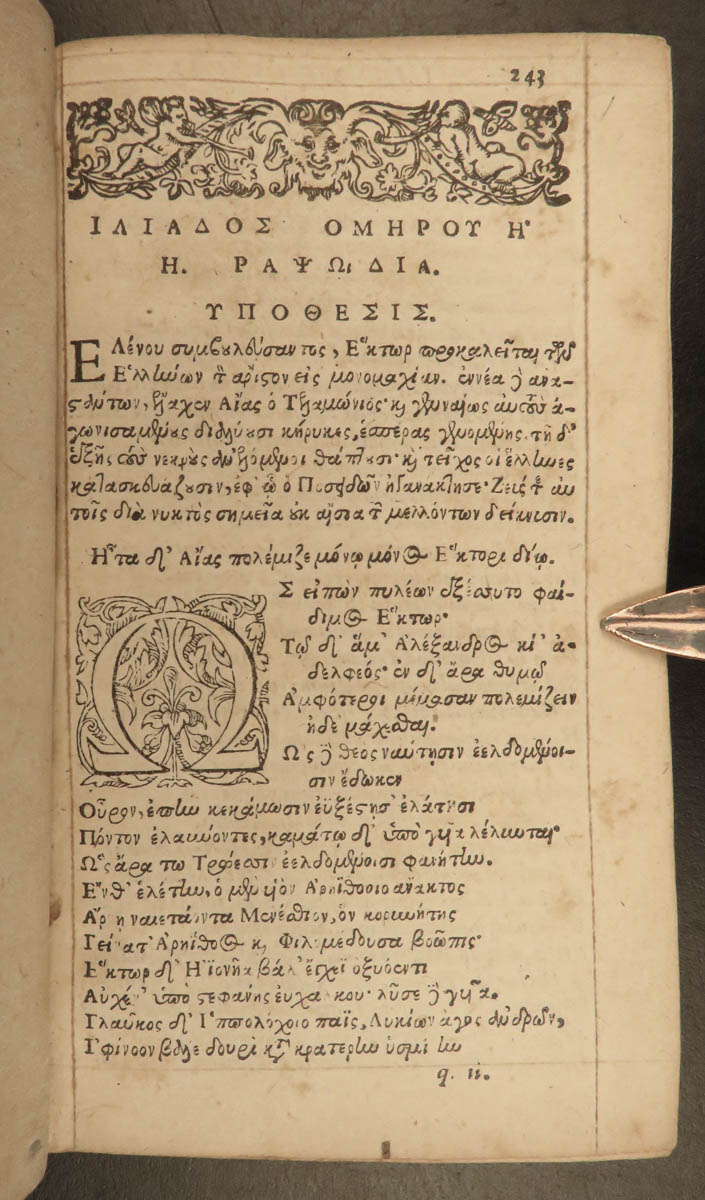 243
ΙΛΙΑΔΟΣ ΟΜΗΡΟΥ Η
Η. ΡΑΨΩΔΙΑ.
ΥΠΟΘΕΣΙΣ.
Ελένου συμβουλεύσαντος, Ἕκτωρ προκαλεῖται τῶν
Ἑλλήνων τὸν ἄριστον εἰς μονομαχίαν. ἐννέα δὲ ἀνα-
στάντων, λαχεν Αἴας ὁ Τελαμώνιος· καὶ γενναίως αὐτοὺς ἀ-
γωνισαμένους διαλύουσι κήρυκες, ἑσπέρας γενομένης. τῇ δ'
ἑξῆς τοὺς νεκροὺς θάπτουσι· καὶ τεῖχος οἱ ἕλληνες
κατασκευάζουσιν, ἐφ' ᾧ ὁ Ποσειδῶν ἠγανάκτησε· Ζεὺς δὲ αὐ
τοῖς διὰ νυκτὸς σημεῖα οὐκ αἴσια τῶν μελλόντων δείκνυσιν.
Ἦτα δ' Αἴας πολέμιζε μόνῳ μόνος Ἕκτορι δίῳ.
Ως εἰπὼν πυλέων ἐξέσσυτο φαί-
διμος Ἕκτωρ·
Τῷ δ' ἅμ' Ἀλέξανδρος κί' ἀ-
δελφεός· ἐν δ' ἄρα θυμῷ
Ἀμφότεροι μέμασαν πολεμίζειν
ἠδὲ μάχεσθαι.
Ὡς δὲ θεὸς ναύτῃσιν ἐελδομένοι-
σιν ἔδωκεν
Οὖρον, ἐπὴν κεκάμωσιν ἐϋξέστῃσ' ἐλάτῃσι
Πόντον ἐλαύνοντες, καμάτῳ δ' ὑπὸ γυῖα λέλυνται·
Ὣς ἄρα τὼ Τρώεσσιν ἐελδομένοισι φανήτην.
Ἔνθ' ἑλέτην, ὁ μὲν υἱὸν Ἀρηϊθόοιο ἄνακτος
Ἄρνῃ ναιετάοντα Μενέσθιον, ὃν κορυνήτης
Γείνατ' Ἀρηΐθοος καὶ Φιλομέδουσα βοῶπις·
Ἕκτωρ δ' Ἠϊονῆα βάλ' ἔγχεϊ ὀξυόεντι
Αὐχέν' ὑπὸ στεφάνης εὐχάλκου· λῦσε δὲ γυῖα.
Γλαῦκος δ' Ἱππολόχοιο παῖς, Λυκίων ἀγὸς ἀνδρῶν,
Ἰφίνοον βάλε δουρὶ κατὰ κρατερὴν ὑσμίνην
q. ii.